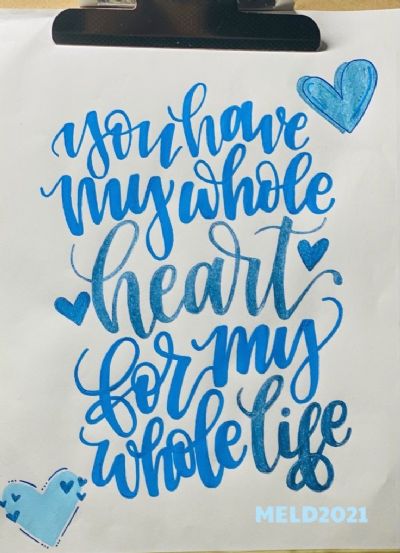 you have
my whole
heart
for my
whole life
MELD2021